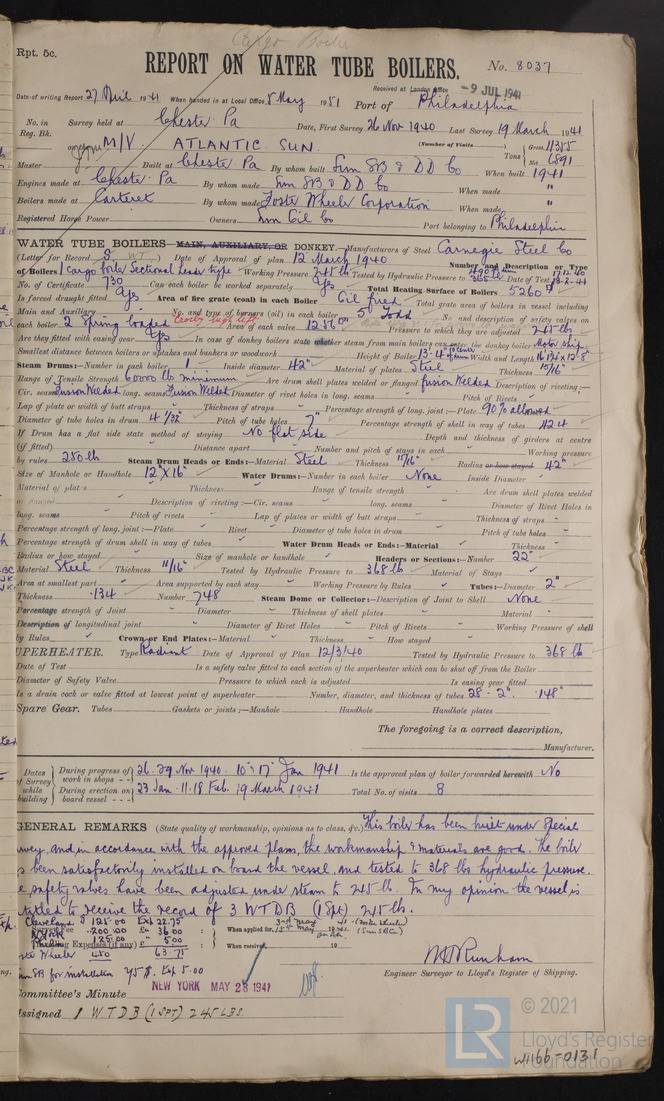 Cargo Boiler
Rpt. 5c.
REPORT ON WATER TUBE BOILERS. No. 8037
Received at London Office -9 JUL 1941
Date of writing Report 27 April 1941 When handed in at Local Office 8 May 1951 Port of Philadelphia
No. in Reg. Bk. Survey held at Chester Pa Date, First Survey 26 Nov 1940 Last Survey 19 March 1941
on the M/V. ATLANTIC SUN. (Number of Visits Tons Gross 11355 Net 6891
Master Built at Chester Pa By whom built Sun SB & DD Co When built 1941
Engines made at Chester. Pa By whom made Sun SB & DD Co When made "
Boilers made at Carteret By whom made Foster Wheeler Corporation When made "
Registered Horse Power Owners Sun Oil Co Port belonging to Philadelphia
WATER TUBE BOILERS MAIN, AUXILIARY, OR DONKEY.—Manufacturers of Steel Carnegie Steel Co
(Letter for Record S WT) Date of Approval of plan 12 March 1940 Number and Description or Type
of Boilers 1 Cargo boiler Sectional header type Working Pressure 245 lb Tested by Hydraulic Pressure to 368 lb Date of Test
No. of Certificate 730 Can each boiler be worked separately Yes Total Heating Surface of Boilers 5260
Is forced draught fitted Yes Area of fire grate (coal) in each Boiler Oil fired Total grate area of boilers in vessel including
Main and Auxiliary No. and type of burners (oil) in each boiler 5 Todd No. and description of safety valves on
each boiler 2 Spring loaded Area of each valve 1256 Pressure to which they are adjusted 245 lbs
Are they fitted with easing gear Yes In case of donkey boilers state whether steam from main boilers can enter the donkey boiler Motor ship
Smallest distance between boilers or uptakes and bunkers or woodwork Height of Boiler 13'-4" Width and Length
Steam Drums:—Number in each boiler 1 Inside diameter 42" Material of plates Steel Thickness 15/16"
Range of Tensile Strength 60000 lb minimum Are drum shell plates welded or flanged fusion Welded Description of riveting:—
Cir. seams Fusion Welded long. seams Fusion Welded Diameter of rivet holes in long. seams Pitch of Rivets
Lap of plate or width of butt straps Thickness of straps Percentage strength of long. joint:—Plate 90% allowed
Diameter of tube holes in drum 4 1/32" Pitch of tube holes 7" Percentage strength of shell in way of tubes 42.4
If Drum has a flat side state method of staying No flat side Depth and thickness of girders at centre
(if fitted) Distance apart Number and pitch of stays in each Working pressure
by rules 250 lb Steam Drum Heads or Ends:—Material Steel Thickness 11/16" Radius or how stayed 42"
Size of Manhole or Handhole 12" X 16" Water Drums:—Number in each boiler None Inside Diameter
Material of plates Thickness Range of tensile strength Are drum shell plates welded
or flanged Description of riveting:—Cir. seams long. seams Diameter of Rivet Holes in
long. seams Pitch of rivets Lap of plates or width of butt straps Thickness of straps
Percentage strength of long. joint:—Plate Rivet Diameter of tube holes in drum Pitch of tube holes
Percentage strength of drum shell in way of tubes Water Drum Heads or Ends:—Material Thickness
Radius or how stayed Size of manhole or handhole Headers or Sections:—Number 22
Material Steel Thickness 11/16" Tested by Hydraulic Pressure to 368 lb Material of Stays
Area at smallest part Area supported by each stay Working Pressure by Rules Tubes:—Diameter 2"
Thickness .134 Number 748 Steam Dome or Collector:—Description of Joint to Shell None
Percentage strength of Joint Diameter Thickness of shell plates Material
Description of longitudinal joint Diameter of Rivet Holes Pitch of Rivets Working Pressure of shell
by Rules Crown or End Plates:—Material Thickness How stayed
UPERHEATER. Type Radiant Date of Approval of Plan 12/3/40 Tested by Hydraulic Pressure to 368 lb
Date of Test Is a safety valve fitted to each section of the superheater which can be shut off from the Boiler
Diameter of Safety Valve Pressure to which each is adjusted Is easing gear fitted
Is a drain cock or valve fitted at lowest point of superheater Number, diameter, and thickness of tubes 28 - 2". .148"
Spare Gear. Tubes Gaskets or joints:—Manhole Handhole Handhole plates
The foregoing is a correct description,
Manufacturer.
Dates of Survey while building During progress of work in shops - - 26. 29 Nov 1940. 10. 17 Jan 1941 Is the approved plan of boiler forwarded herewith No
During erection on board vessel - - - 23 Jan. 11.18 Feb. 19 March 1941 Total No. of visits 8
GENERAL REMARKS (State quality of workmanship, opinions as to class, &c.) This boiler has been built under Special
urvey, and in accordance with the approved plans, the workmanship & materials are good. The boiler
s been satisfactorily installed on board the vessel, and tested to 368 lbs hydraulic pressure.
e safety valves have been adjusted under steam to 245 lb. In my opinion the vessel is
titled to receive the record of 3 WTDB (1 Spt) 245 lb.
Cleveland $ 125.00 Exp 22.75
Survey Fee 200.00 36.00 When applied for,
Travelling Expenses (if any) £ 5.00 When received, 19
Wheeler 450 63.75
Sun SB for installation 75 $. Exp 5.00
Engineer Surveyor to Lloyd's Register of Shipping.
NEW YORK MAY 28 1941
Committee's Minute
Assigned 1 WTDB (1 SPT) 245 LBS
© 2021
LR
Lloyd's Register
Foundation
W1166-0131